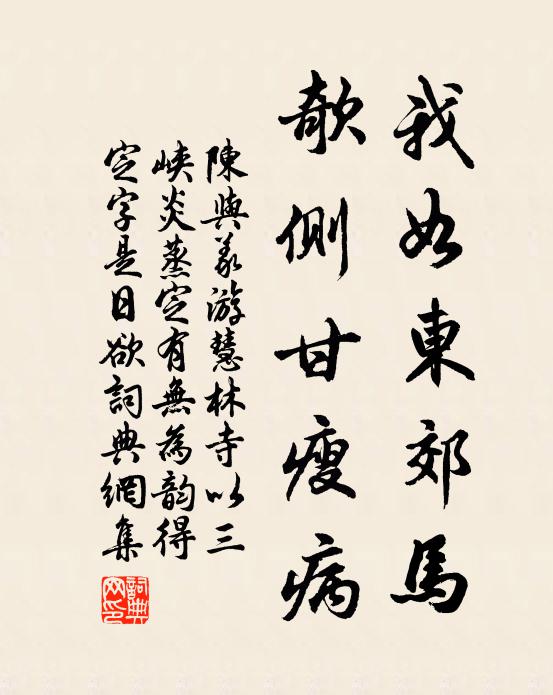 我如東郊馬
欹側甘瘦病
陳與義游慧林寺以三
峽炎蒸定有無為韵得
定字是日欲詞典網集
詞典网印